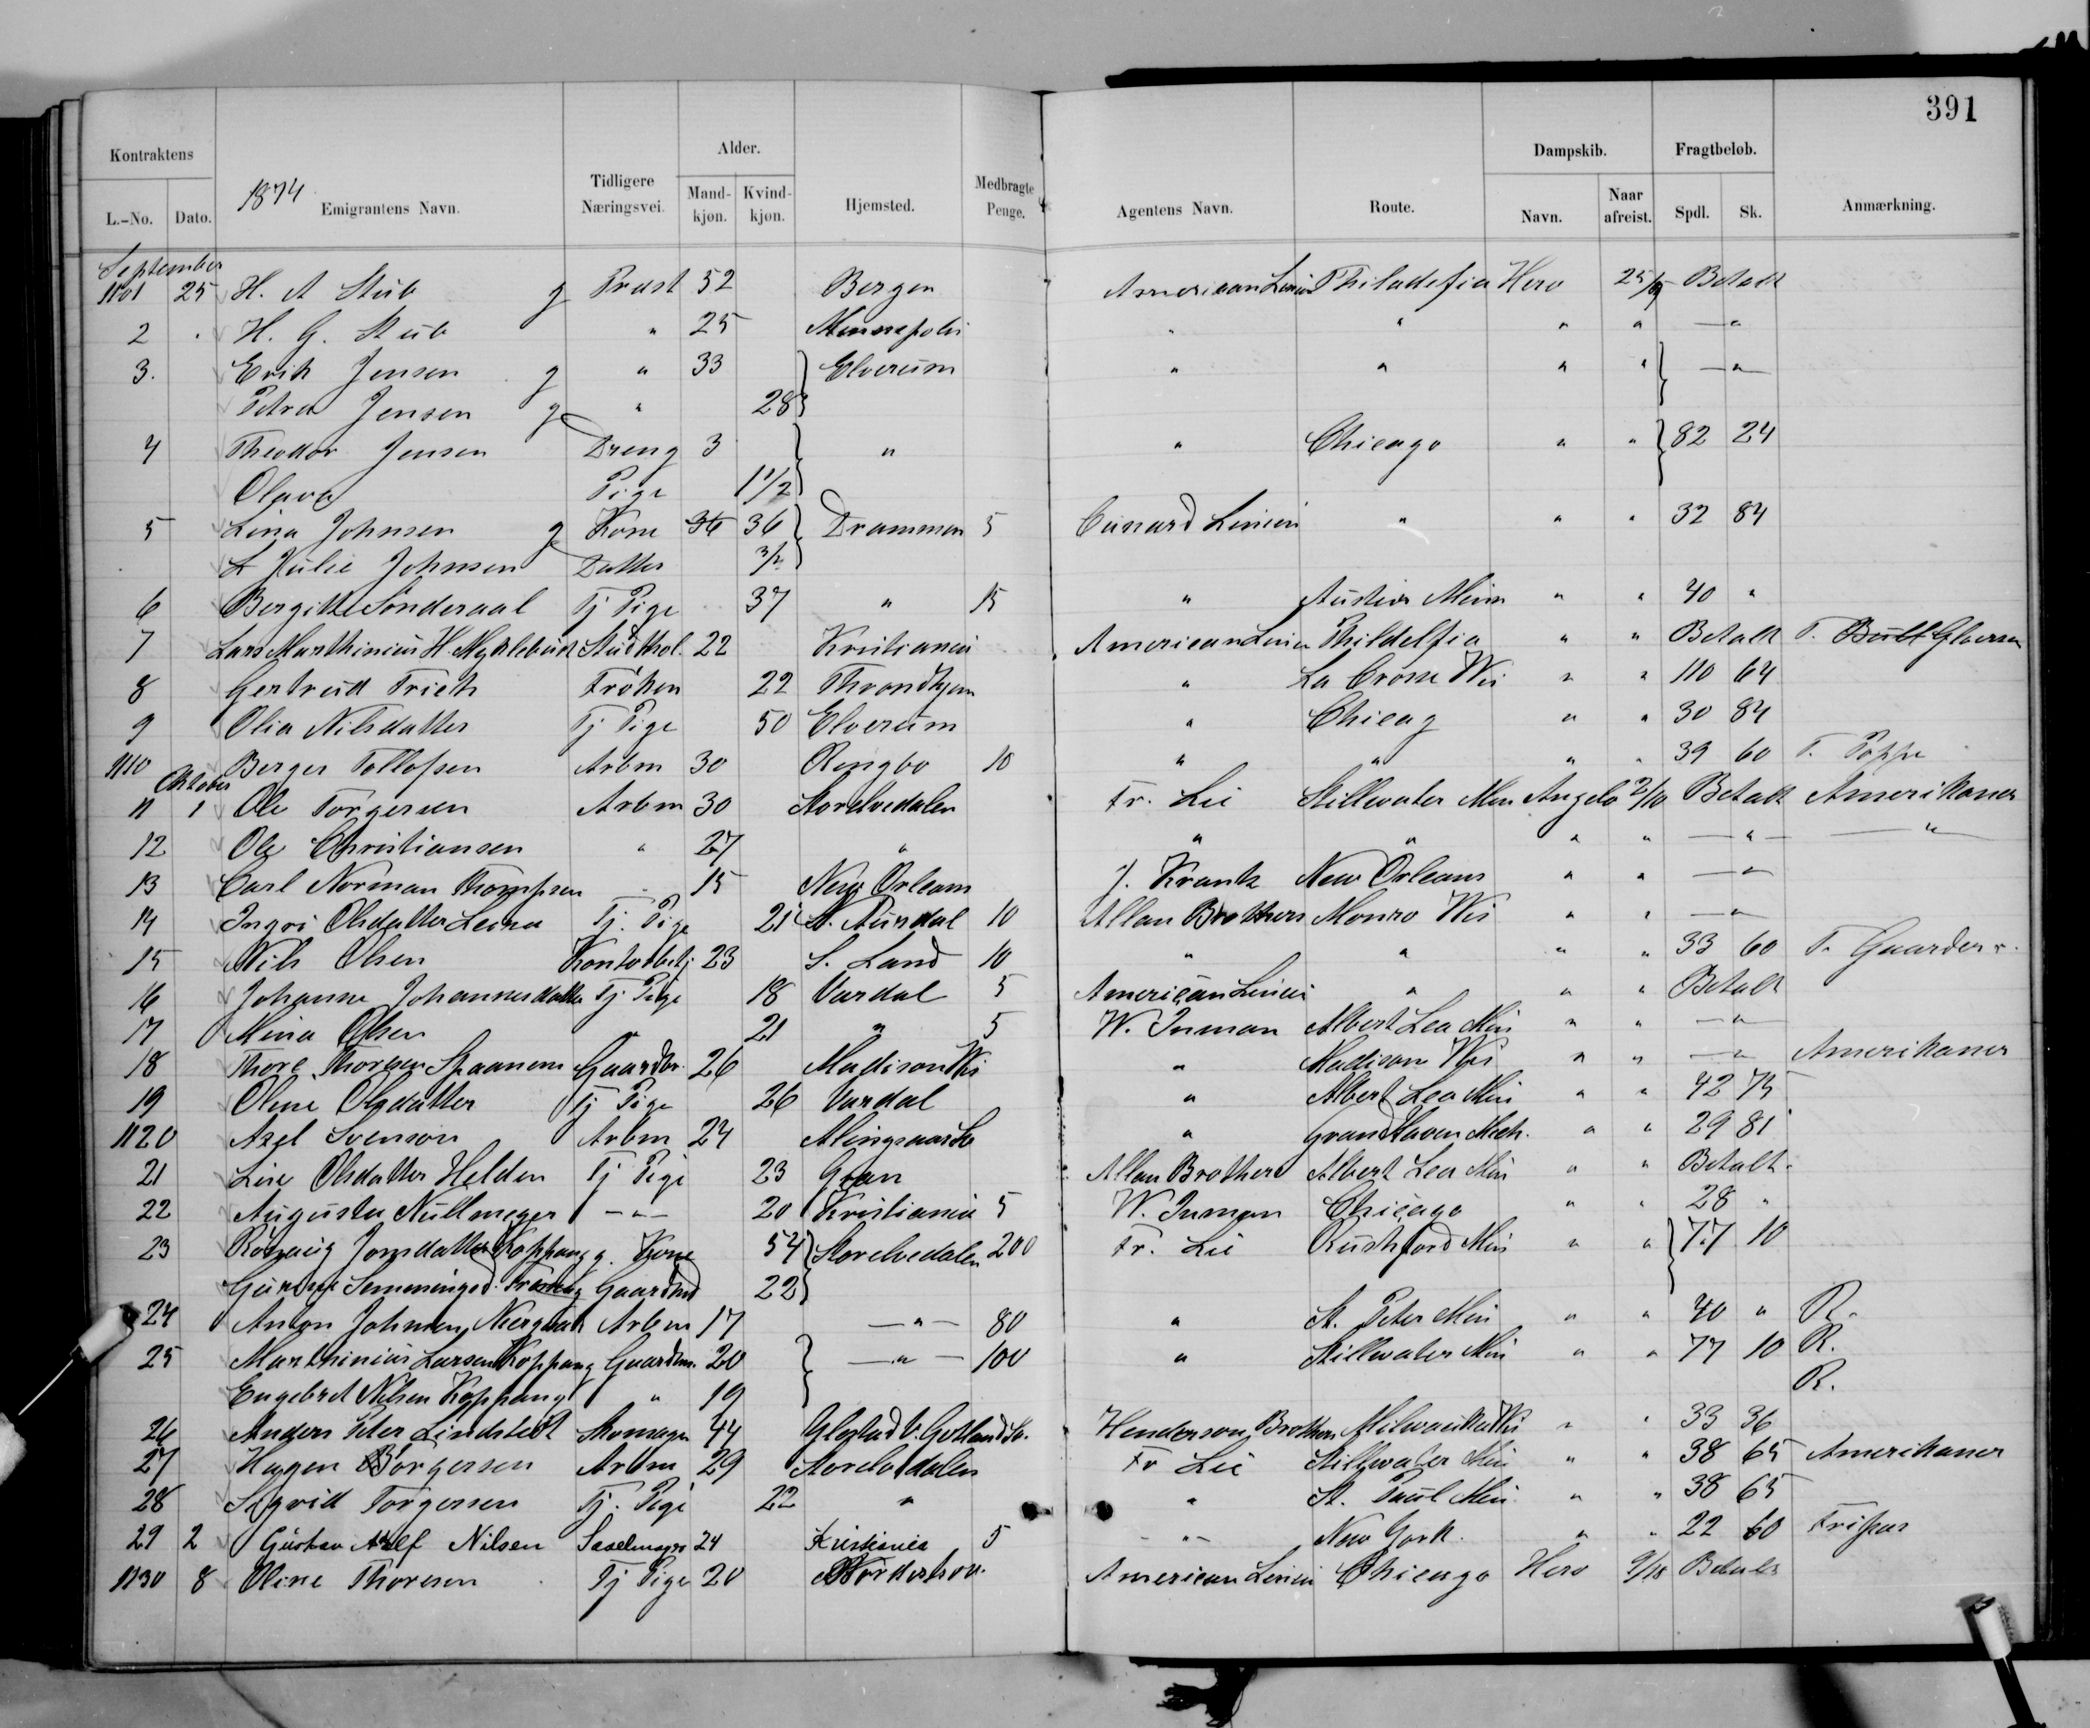 391
Kontraktens Alder. Dampskib. Fragtbeløb.
L.-No. Dato. 1874 Emigrantens Navn. Tidligere Næringsvei. Mandkjøn. Kvindkjøn. Hjemsted. Medbragte Penge. Agentens Navn. Route. Navn. Naar afreist. Spdl. Sk. Anmærkning.
September
1101 25 H. A Stub g Præst 52 Bergen American Linien Philadefia Hero 25/9 Betalt
2 " H. G. Stub " 25 Minneapolis " " " " —"
3. Erik Jensen g " 33 Elverum " " " " —"—
Petra Jensen g " 28
4 Theodor Jensen Dreng 3 " " Chicago " " 82 24
Olava Pige 1 1/2
5 Lina Johnsen g Kone 36 36 Drammen 5 Cunard Linien " " " 32 84
L Julie Johnsen Datter 3/4
6 Bergitte Sønderaal Tj Pige 37 " 15 " Austin Minn " " 40 "
7 Lars Marthinius H. Myklebust Stud thol 22 Kristiania American Linien Phildelfia " " Betalt T. Bull
8 Gertrud Frich Frøken 22 Throndhjem " La Crosse Wis " " 110 64
9 Olia Nilsdatter Tj Pige 50 Elverum " Chicag " " 30 84
1110 Berger Tollofsen Arbm 30 Ringbo 10 " " " " 39 60 T. Poppe
Oktober
11 1 Ole Torgersen Arbm 30 Storelvedalen Fr. Lie Stillwater Min Angelo 2/10 Betalt Amerikaner
12 Ole Christiansen " 27 " " " " " —"— —"—
13 Carl Norman Thompsen " 15 New Orleans J. Krantz New Orleans " " —"—
14 Ingri Olsdatter Leira Tj. Pige 21 N. Aurdal 10 Allan Brothers Monro Wis " " —"—
15 Nils Olsen Kontorbetj. 23 S. Land 10 " " " " 33 60 T. Gaarder
16 Johanne Johannesdatter Tj. Pige 18 Vardal 5 American Linien " " " Betalt
17 Mina Olsen " 21 " 5 W. Inman Albert Lea Min " " —"—
18 Thore Thorsen Spaanem Gaardbr. 26 Madison Wis " Madison Wis " " —"— Amerikaner
19 Oline Olsdatter Tj Pige 26 Vardal " Albert Lea Min " " 42 75
1120 Axel Svenson Arbm 24 Alingsaas Sv " Grand Haven Mich. " " 29 81
21 Line Olsdatter Helden Tj Pige 23 Gran Allan Brothers Albert Lea Min " " Betalt
22 Augusta Nullmeyer —"— 20 Kristiania 5 W. Inman Chicago " " 28 "
23 Rønaug Jonsdatter Koppang g. Kone 54 Storelvedalen 200 Fr. Lie Rushford Min " " 77 10
Semmingsd. Gaardmd 22
24 Anton Johnsen Arbm 17 —"— 80 " St. Peter Min " " 40 " R.
25 Marthinius Larsen Koppang Gaardm. 20 —"— 100 " Stillwater Min " " 77 10 R.
Engebret Nilsen Koppang " 19 R.
26 Anders Peter Lindstedt Skomager 44 Henderson Brothers Milwaukee Wis " " 33 36
27 Hagen Borgersen Arbm 29 Storelvedalen Fr Lie Stillwater Min " " 38 65 Amerikaner
28 Sigrid Torgersen Tj. Pige 22 " " St. Paul Min " " 38 65
29 2 Gustav Adlf Nilsen Sadelmager 24 Kristiania 5 —"— New York. " " 22 60 Fripas
1130 8 Oline Thoresen Tj Pige 20 Norderhov. American Linien Chicago Hero 9/10 Betalt